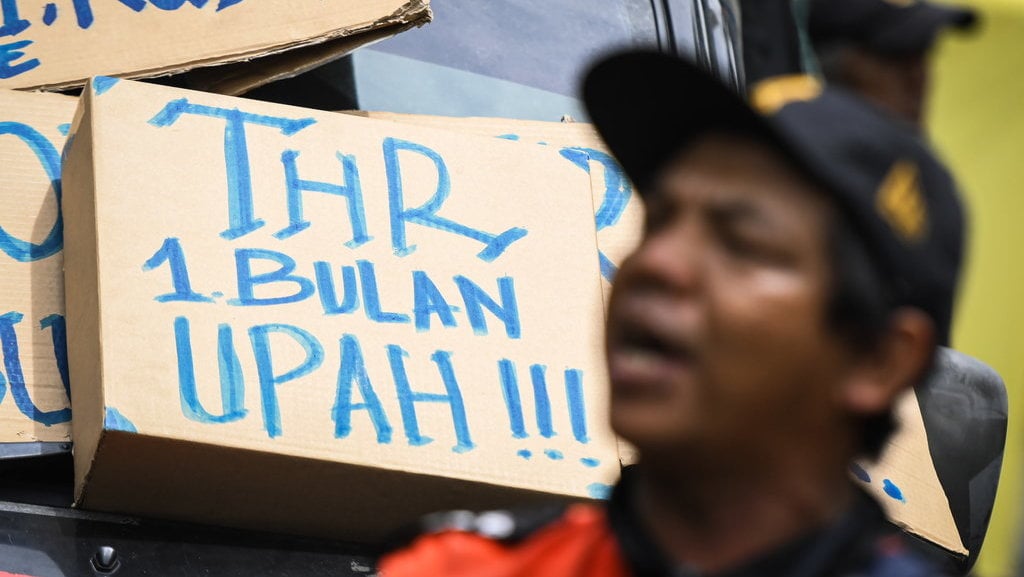 THR
1. BULAN
UPAH !!!